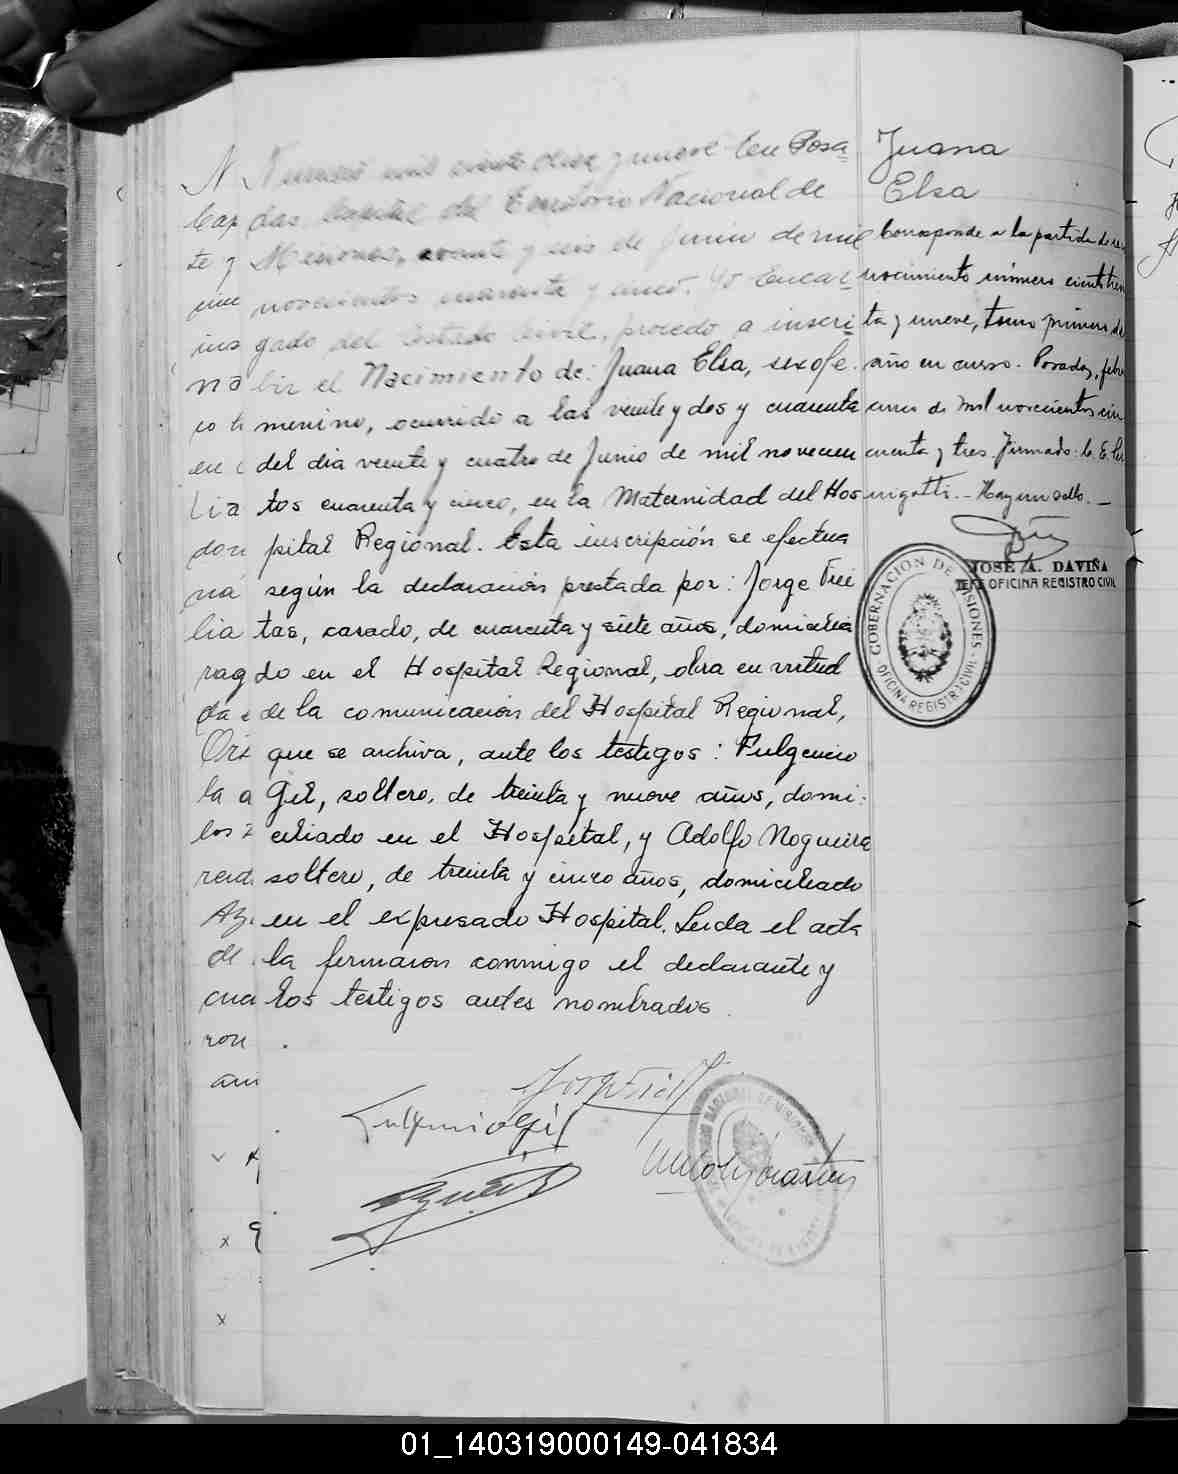 Número mil ciento diez y nueve En Posa
das Capital del Territorio Nacional de
Misiones, veinte y seis de Junio de mil
novecientos cuarenta y cinco. Yo Encar
gado del Estado Civil, procedo a inscri
bir el Nacimiento de: Juana Elsa, sexo fe
menino, ocurrido a las veinte y dos y cuarenta
del dia veinte y cuatro de Junio de mil novecien
tos cuarenta y cinco, en la Maternidad del Hos
pital Regional. Esta inscripción se efectua
según la declaración prestada por: Jorge
tas, casado, de cuarenta y siete años, domicilia
do en el Hospital Regional, obra en virtud
de la comunicación del Hospital Regional,
que se archiva, ante los testigos: Fulgencio
Gil, soltero, de treinta y nueve años, domi
ciliado en el Hospital, y Adolfo Nogueira
soltero, de treinta y cinco años, domiciliado
en el expresado Hospital. Leida el acta
la firmaron conmigo el declarante y
los testigos antes nombrados.
Fulgencio Gil
Juana
Elsa
Corresponde a la partida de re
nocimiento número ciento trein
ta y nueve, tomo primero del
año en curso. Posadas, febre
mil novecientos cin
cuenta y tres. Firmado: C. E.
Hay un sello. -
JOSE A. DAVIÑA
JEFE OFICINA REGISTRO CIVIL
GOBERNACION DE MISIONES
OFICINA REGISTRO CIVIL
01_140319000149-041834